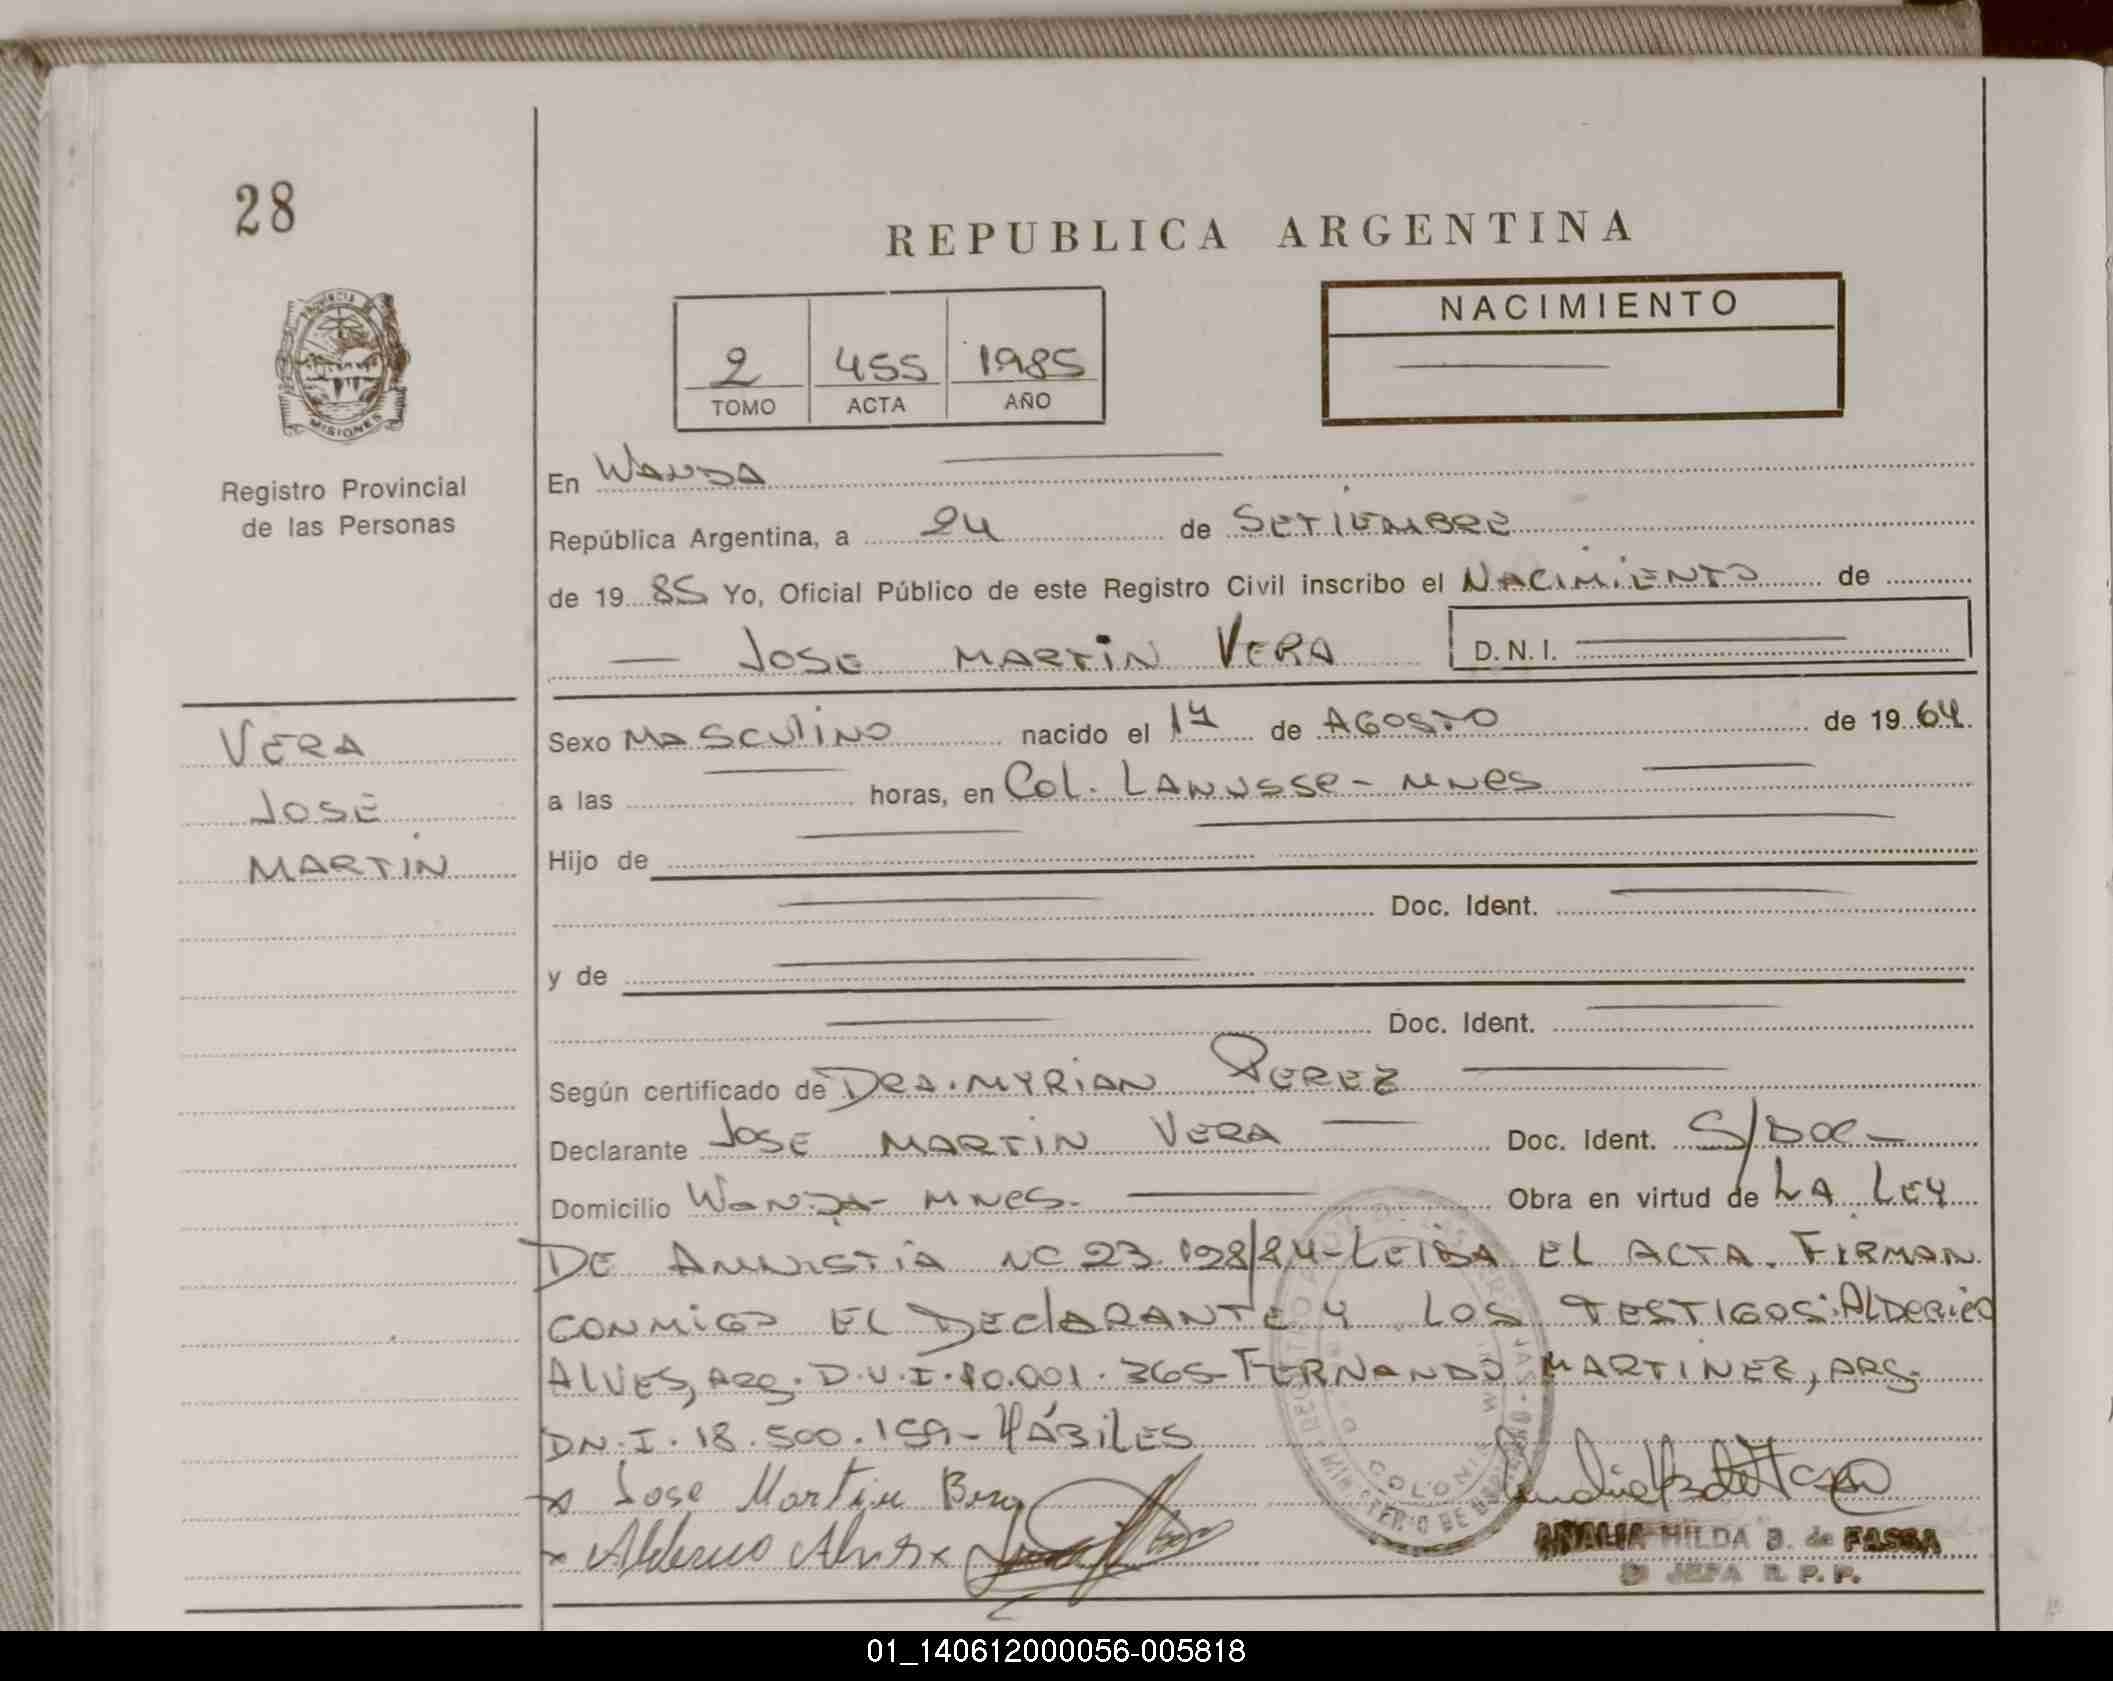 28
REPUBLICA ARGENTINA
NACIMIENTO
2 455 1985
TOMO ACTA AÑO
PROVINCIA DE
MISIONES
Registro Provincial
de las Personas
En WANDA
República Argentina, a 24 de SETIEMBRE
de 19 85 Yo, Oficial Público de este Registro Civil inscribo el NACIMIENTO de
JOSE MARTIN VERA D.N.I.
VERA
JOSE
MARTIN
Sexo MASCULINO nacido el 17 de AGOSTO de 19 64.
a las horas, en Col. LANUSSE - MNES
Hijo de
Doc. Ident.
y de
Doc. Ident.
Según certificado de DRA. MYRIAN PEREZ
Declarante JOSE MARTIN VERA Doc. Ident. S/DOC-
Domicilio WANDA - MNES. Obra en virtud de LA LEY
DE AMNISTIA Nº 23.128/84 - LEIDA EL ACTA. FIRMAN
CONMIGO EL DECLARANTE Y LOS TESTIGOS: ALDERICO
ALVES, ARG. D.N.I. 10.001.365 - FERNANDO MARTINEZ, ARG.
DN.I. 18.500.159 - HÁBILES
x Jose Martin Bera
x Alderico Alves x
ANALIA HILDA B. de FASSA
JEFA R. P. P.
01_140612000056-005818